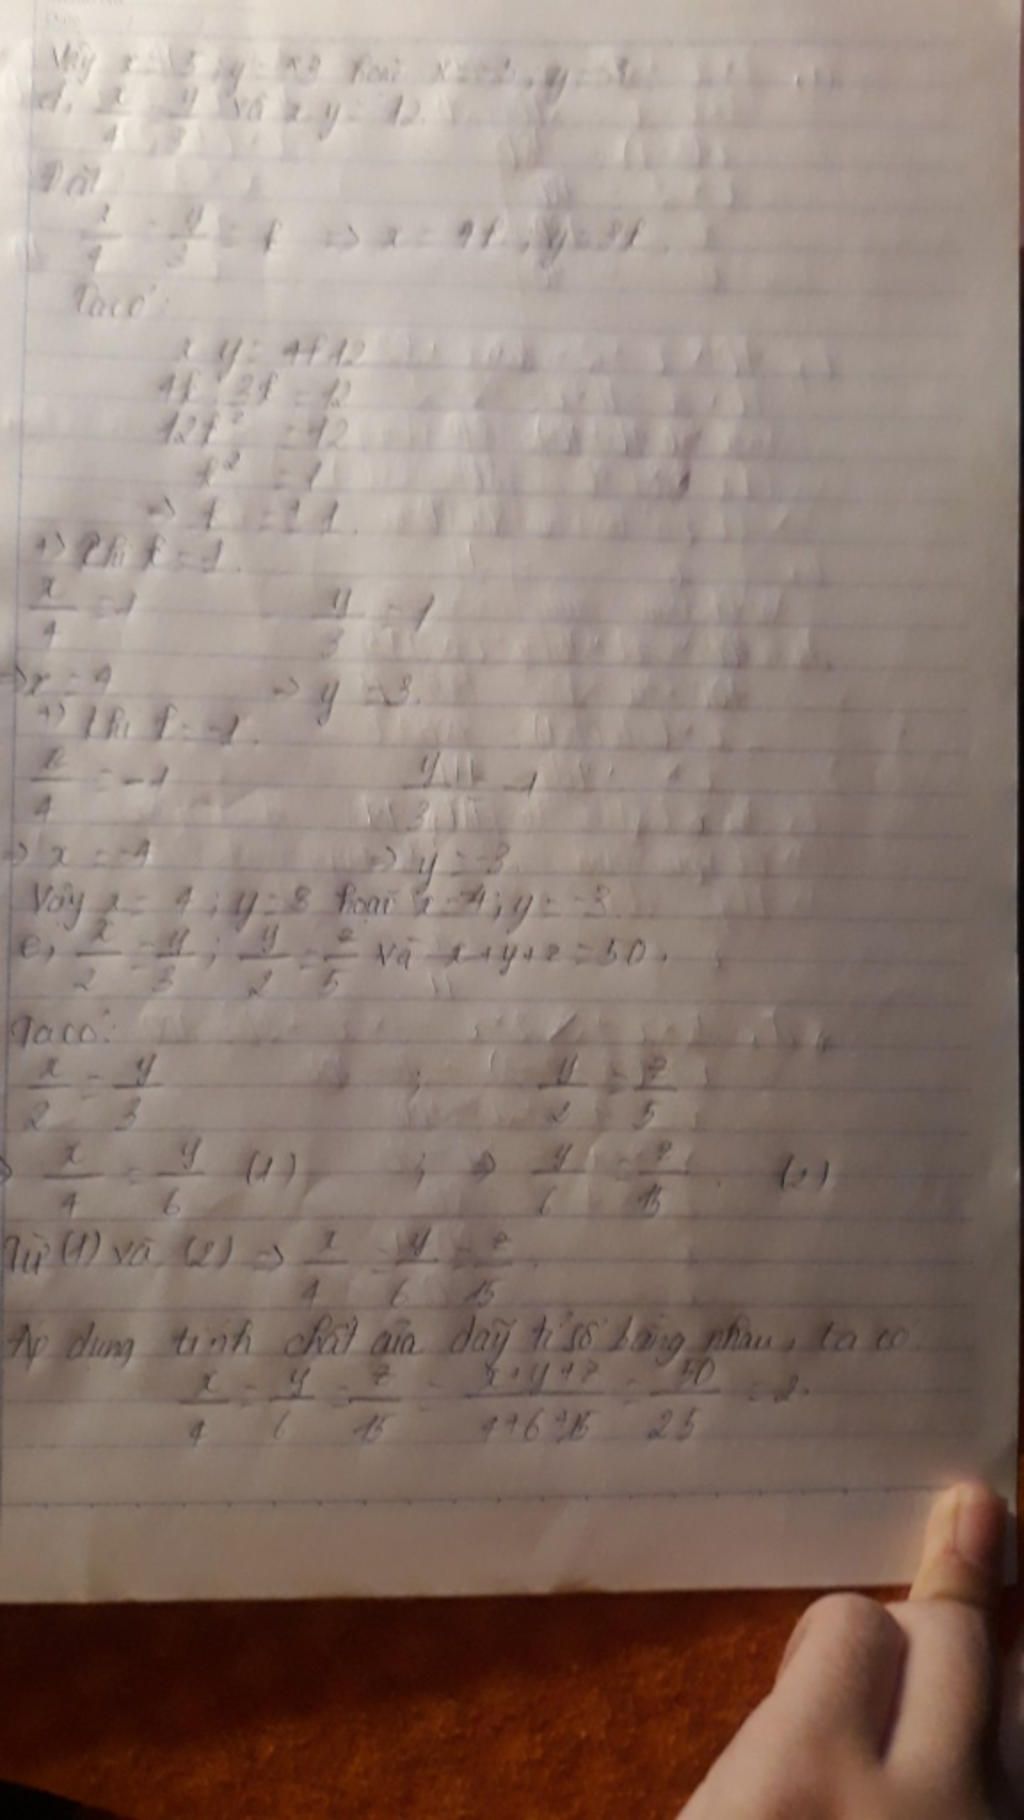 Vậy x = 3; y = hoặc x = ; y =
d, x/4 = y/3 và x y = 12.
Đặt
x/4 = y/3 = t => x = 4t; y = 3t.
Ta có:
x y = 12
4t 3t = 12
12t² = 12
t² = 1
=> t = ±1.
+) Khi t = 1.
x/4 = 1 y/3 = 1
=> x = 4 => y = 3.
+) Khi t = -1.
x/4 = -1 y/3 = -1
=> x = -4 => y = -3
Vậy x = 4; y = 3 hoặc x = -4; y = -3
e, x/2 = y/3; y/2 = z/5 và x + y + z = 50.
Ta có:
x/2 = y/3 ; y/2 = z/5
=> x/4 = y/6 (1) ; => y/6 = z/15. (2)
Từ (1) và (2) => x/4 = y/6 = z/15.
Áp dụng tính chất của dãy tỉ số bằng nhau, ta có
x/4 = y/6 = z/15 = x+y+z/4+6+15 = 50/25 = 2.